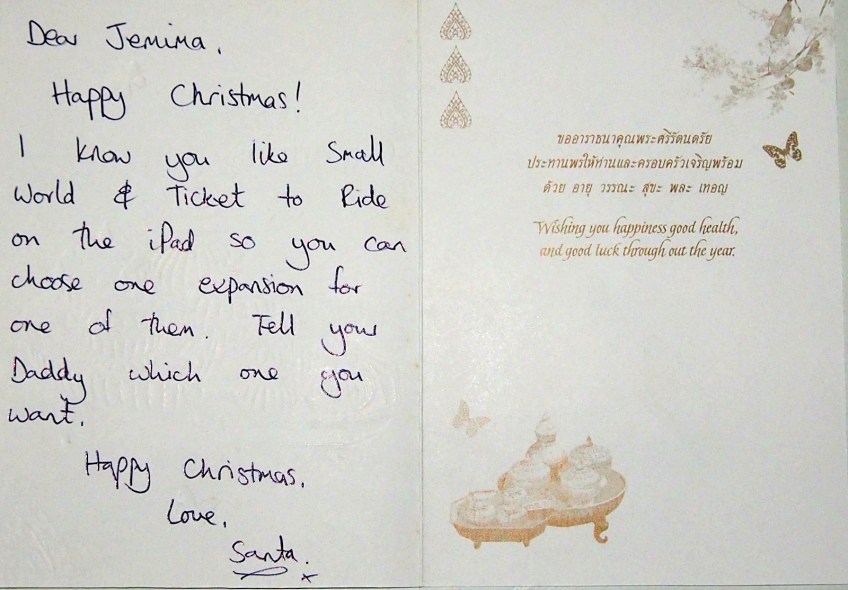 Dear Jemima,
Happy Christmas!
I know you like Small
World & Ticket to Ride
on the iPad so you can
choose one expansion for
one of them. Tell your
Daddy which one you
want.
Happy Christmas,
Love,
Santa. x
ขออาราธนาคุณพระศรีรัตนตรัย
ประทานพรให้ท่านและครอบครัวเจริญพร้อม
ด้วย อายุ วรรณะ สุขะ พละ เทอญ
Wishing you happiness good health,
and good luck through out the year.